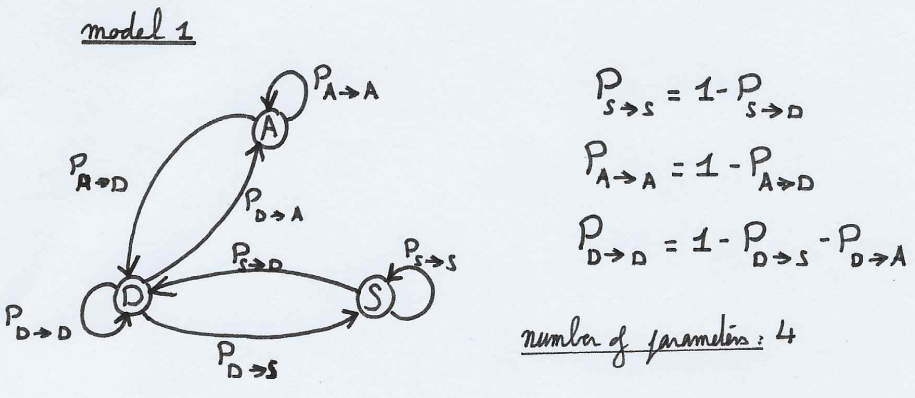 model 1
P A→A
A
P A→D
P D→A
P S→D
P S→S
D
S
P D→D
P D→S
P S→S = 1 - P S→D
P A→A = 1 - P A→D
P D→D = 1 - P D→S - P D→A
number of parameters: 4